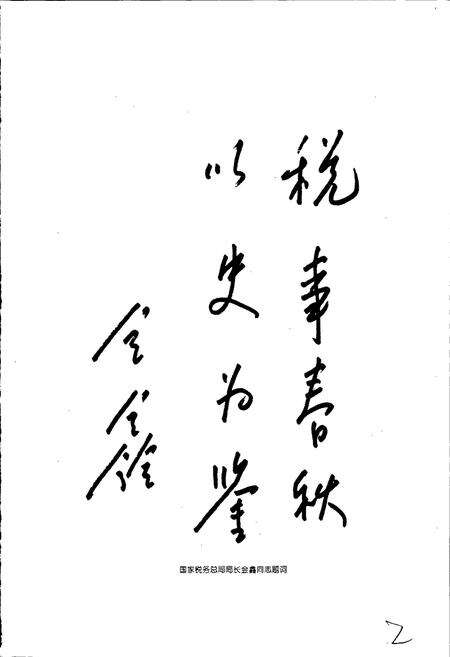 税事春秋
以史为鉴
金鑫
国家税务总局局长金鑫同志题词
2